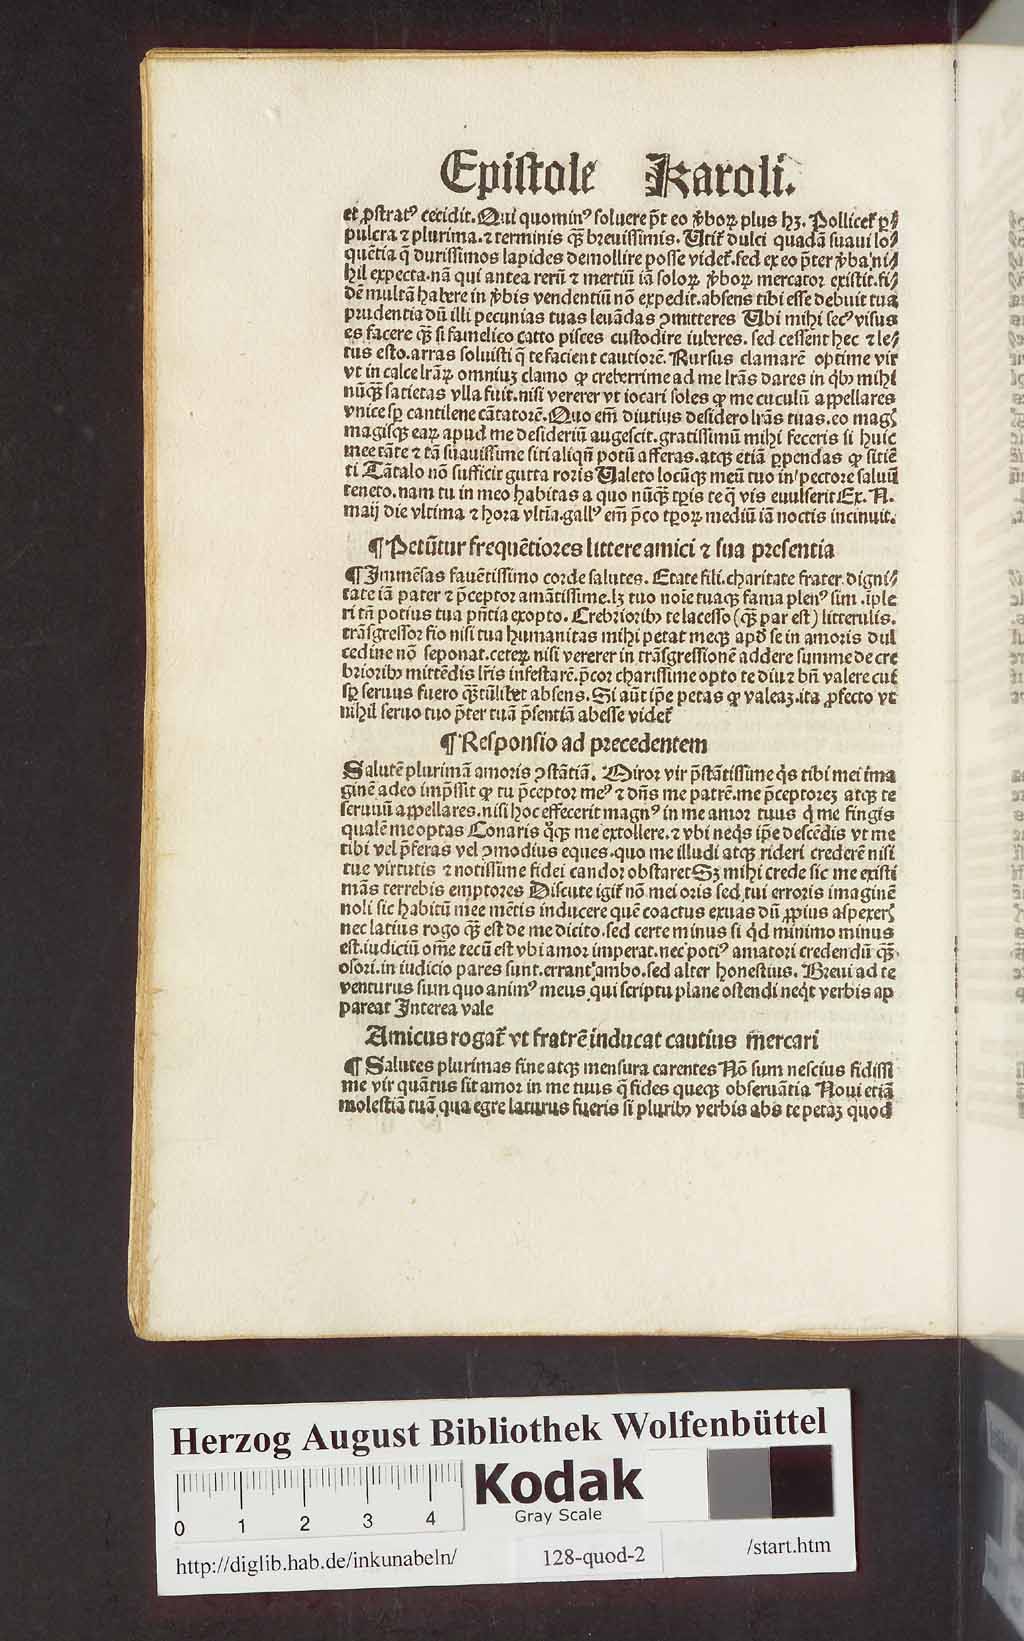 Epistole Karoli.
et ꝓstratꝰ cecidit. Qui quominꝰ soluere pt̄ eo v̓boꝝ plus hꝫ. Pollicet᷑ p̱⸗
pulcra ⁊ plurima. ⁊ terminis qꝫ̄ breuissimis. Utit᷑ dulci quadā suaui lo⸗
quētia q̄ durissimos lapides demollire posse videt᷑. sed ex eo p̄ter v̓ba ni⸗
hil expecta. nā qui antea rerū ⁊ mertiū iā soloꝝ v̓boꝝ mercator existit. fi⸗
dē multā habere in v̓bis vendentiū nō expedit. absens tibi esse debuit tua
prudentia dū illi pecunias tuas leuādas ꝯmitteres Ubi mihi secꝰ visus
es facere qꝫ̄ si famelico catto pisces custodire iuberes. sed cessent hec ⁊ le⸗
tus esto. arras soluisti q̄ te facient cautiorē. Rursus clamarē optime vir
vt in calce lr̄aꝝ omniuꝫ clamo ꝙ creberrime ad me lr̄as dares in qͥbꝰ mihi
nūqꝫ̄ satietas vlla fuit. nisi vererer vt iocari soles ꝙ me cuculū appellares
vnice sꝑ cantilene cātatorē. Quo em̄ diutius desidero lr̄as tuas. eo magꝭ
magisqꝫ eaꝝ apud me desideriū augescit. gratissimū mihi feceris si huic
mee tāte ⁊ tā suauissime siti aliqn̄ potū afferas. atqꝫ etiā ꝑpendas ꝙ sitiē
ti Tātalo nō sufficit gutta roris Ualeto locūqꝫ meū tuo in pectore saluū
teneto. nam tu in meo habitas a quo nūqꝫ̄ tp̄is te q̄ vis euulserit Ex. N.
maij die vltima ⁊ hora vltīa. gallꝰ em̄ p̄co tp̄oꝝ mediū iā noctis incinuit.
¶ Petūtur frequētiores littere amici ⁊ sua presentia
¶ Immēsas fauētissimo corde salutes. Etate fili. charitate frater. digni⸗
tate iā pater ⁊ p̄ceptor amātissime. lꝫ tuo noīe tuaqꝫ fama plenꝰ sim. īple
ri tn̄ potius tua pn̄tia exopto. Crebrioribꝰ te lacesso (qꝫ̄ par est) litterulis.
trāsgressor fio nisi tua humanitas mihi petat meqꝫ apd̓ se in amoris dul
cedine nō seponat. ceteꝝ nisi vererer in trāsgressionē addere summe de cre
brioribꝰ mittēdis lr̄is infestarē. p̄cor charissime opto te diu ⁊ bn̄ valere cuiꝰ
sꝑ seruus fuero qꝫ̄tūlibet absens. Si aūt ip̄e petas ꝙ valeaꝫ. ita ꝓfecto vt
nihil seruo tuo p̄ter tuā p̄sentiā abesse videt᷑
¶ Responsio ad precedentem
Salutē plurimā amoris ꝯstātiā. Miror vir p̄stātissime qͥs tibi mei ima
ginē adeo imp̄ssit ꝙ tu p̄ceptor meꝰ ⁊ dn̄s me patrē. me p̄ceptoreꝫ atqꝫ te
seruuū appellares. nisi hoc effecerit magnꝰ in me amor tuus qͥ me fingis
qualē me optas Conaris qͦqꝫ me extollere. ⁊ vbi neqͥs ip̄e descēdis vt me
tibi vel p̄feras vel ꝯmodius eques. quo me illudi atqꝫ rideri crederē nisi
tue virtutis ⁊ notissime fidei candor obstaret Sꝫ mihi crede sic me existi
mās terrebis emptores Discute igit᷑ nō mei oris sed tui erroris imaginē
noli sic habitū mee mētis inducere quē coactus exuas dū ꝓpius aspexerꝭ
nec latius rogo qꝫ̄ est de me dicito. sed certe minus si qͥd minimo minus
est. iudiciū om̄e tecū est vbi amor imperat. nec potiꝰ amatori credendū qꝫ̄
osori. in iudicio pares sunt. errant ambo. sed alter honestius. Breui ad te
venturus sum quo animꝰ meus qui scriptu plane ostendi neqͥt verbis ap
pareat Interea vale
Amicus rogat᷑ vt fratrē inducat cautius mercari
¶ Salutes plurimas fine atqꝫ mensura carentes Nō sum nescius fidissi
me vir quātus sit amor in me tuus q̄ fides queqꝫ obseruātia Noui etiā
molestiā tuā qua egre laturus fueris si pluribꝰ verbis abs te petaꝫ quod
Herzog August Bibliothek Wolfenbüttel
0 1 2 3 4
Kodak
Gray Scale
http://diglib.hab.de/inkunabeln/ 128-quod-2 /start.htm